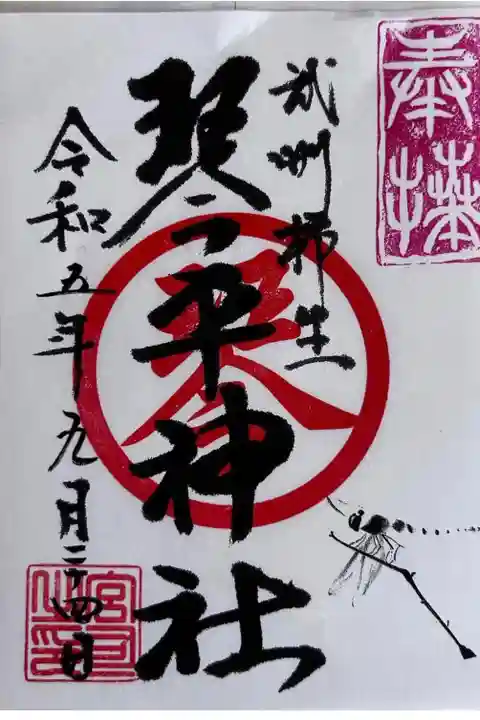 奉拝
武州柿生
琴平神社
令和五年九月二十四日
宮司之印